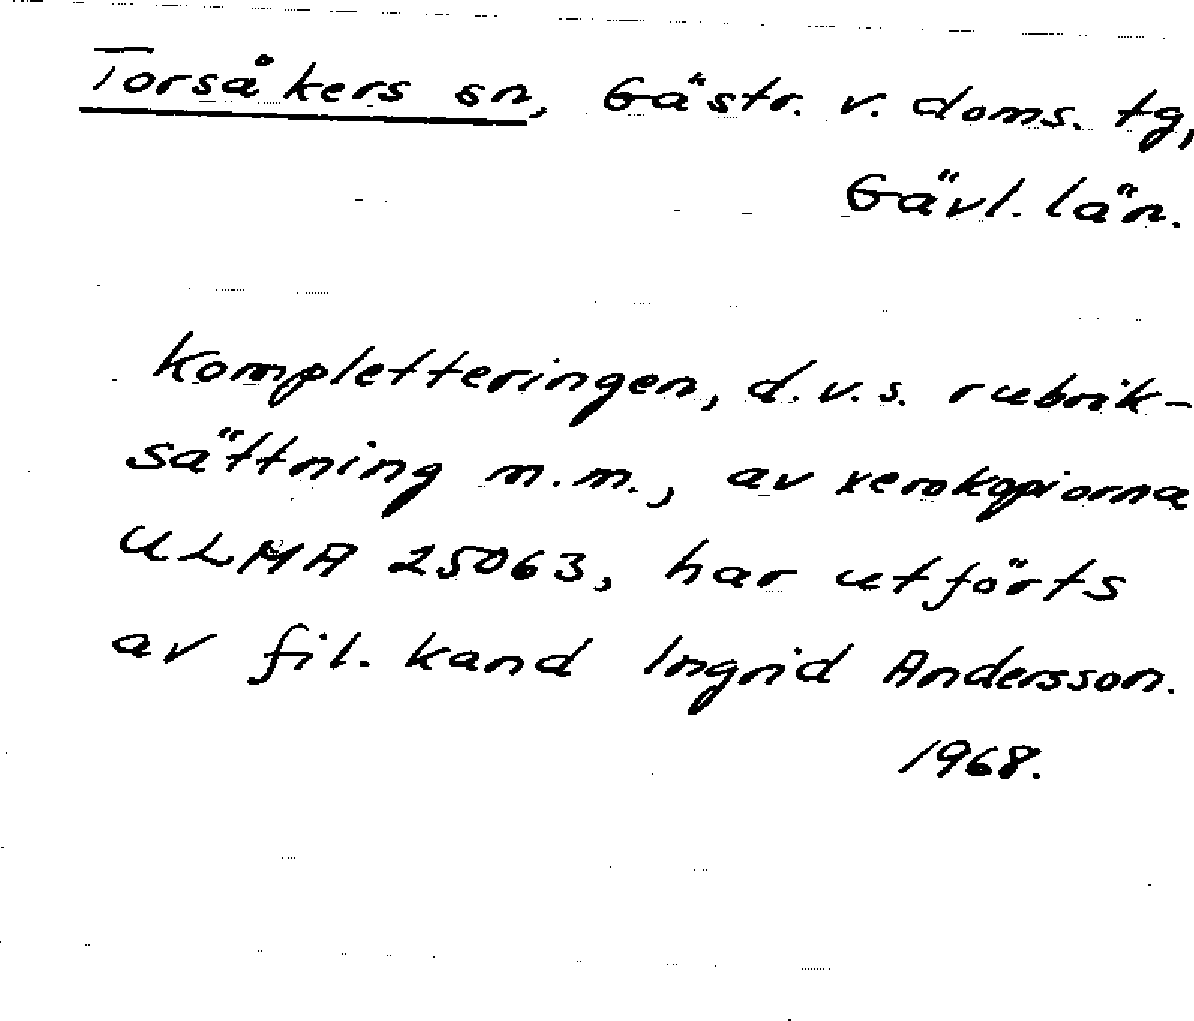 Torsåkers sn, Gästr. v. doms. tg,
Gävl. län.
Kompletteringen, d.v.s. rubrik-
sättning m.m., av xerokopiorna
ULMA 25063, har utförts
av fil. kand Ingrid Andersson.
1968.